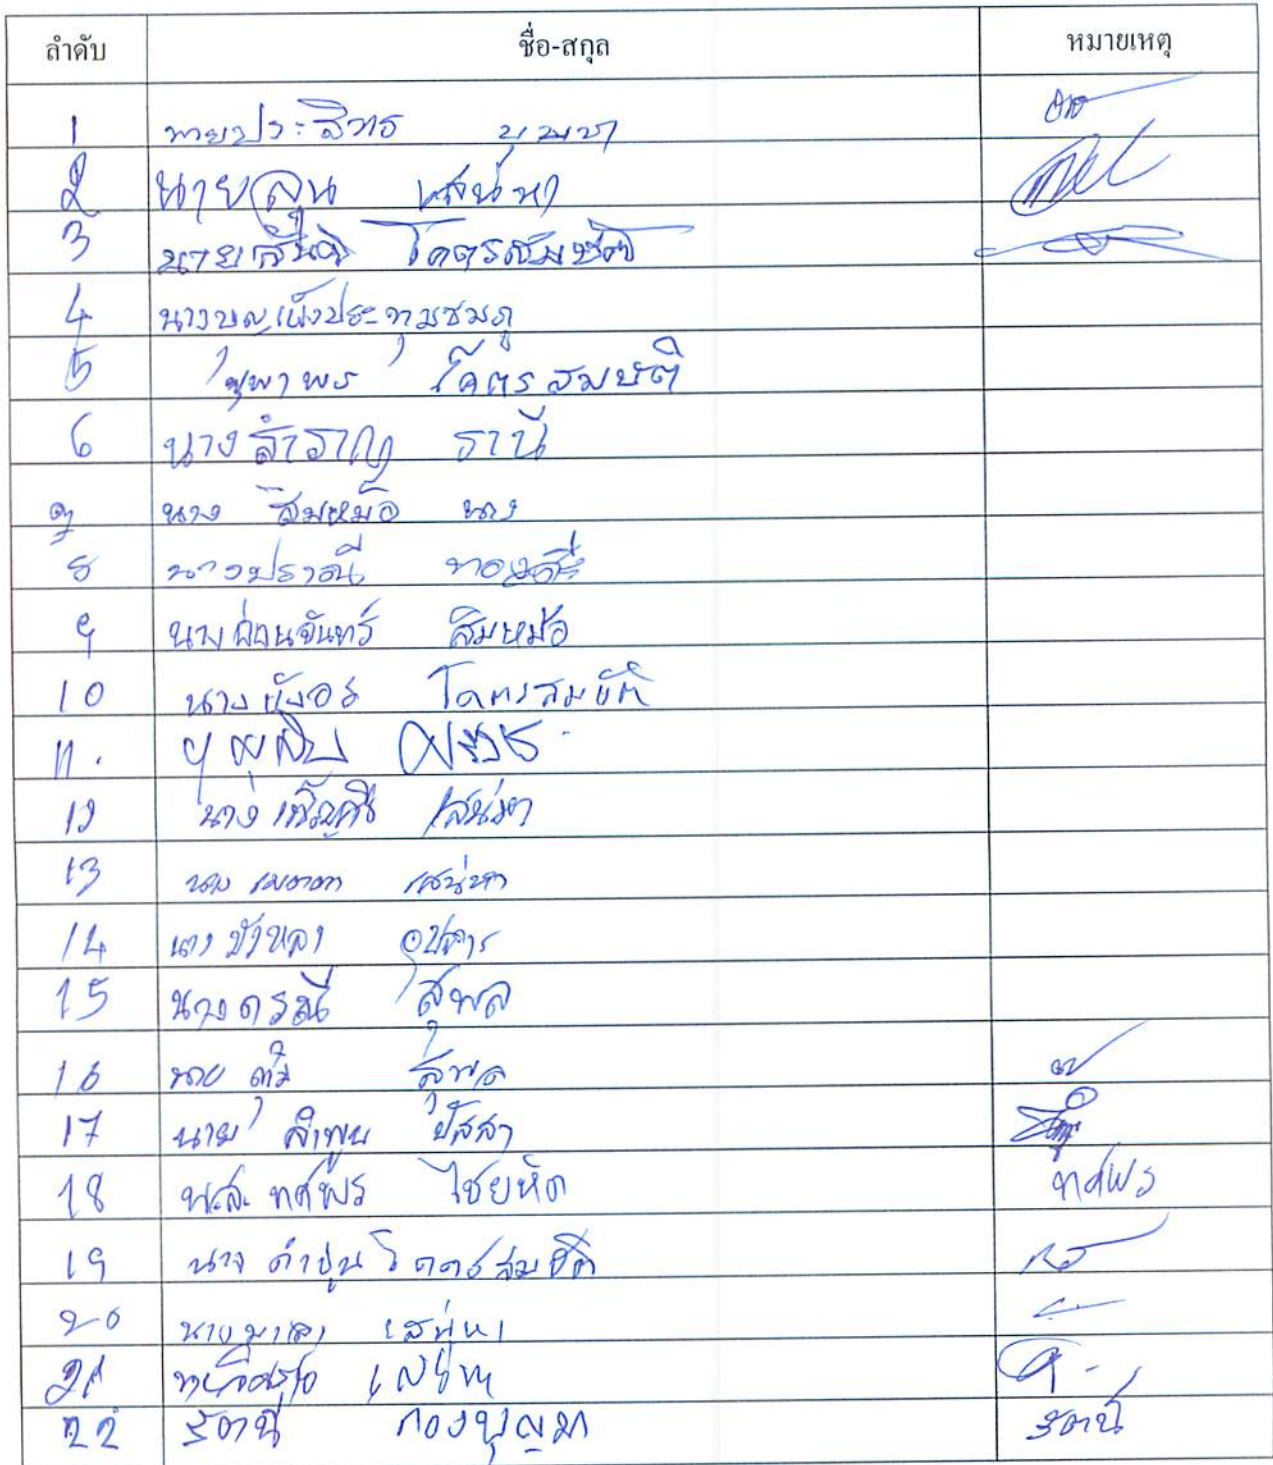 ลำดับ ชื่อ-สกุล หมายเหตุ
1 นายประสิทธ บุบผา
2 นายลุน เสน่หา
3 นายสันติ โคตรสมบัติ
4 นางบุญเพ็งประทุมชมภู
5 ยุพาพร โคตรสมบัติ
6 นางสำราญ ธานี
7 นาง สิมหม้อ นาง
8 นางปราณี ทองสี
9 นางผ่านจันทร์ สิมหม้อ
10 นางบังอร โคตรสมบัติ
11.
12 นาง เสน่หา
13 นาง เสน่หา
14 นาง อุปการ
15 นางดรุณี สุพล
16 นาย สุพล
17 นาย ลำพูน ปัสสา
18 น.ส. ทศพร ไชยหัด ทศพร
19 นาง คำปุ่น โคตรสมบัติ
20 นางมาลา เสน่หา
21 เสน่หา
22 รัตนี กองบุญมา รัตนี